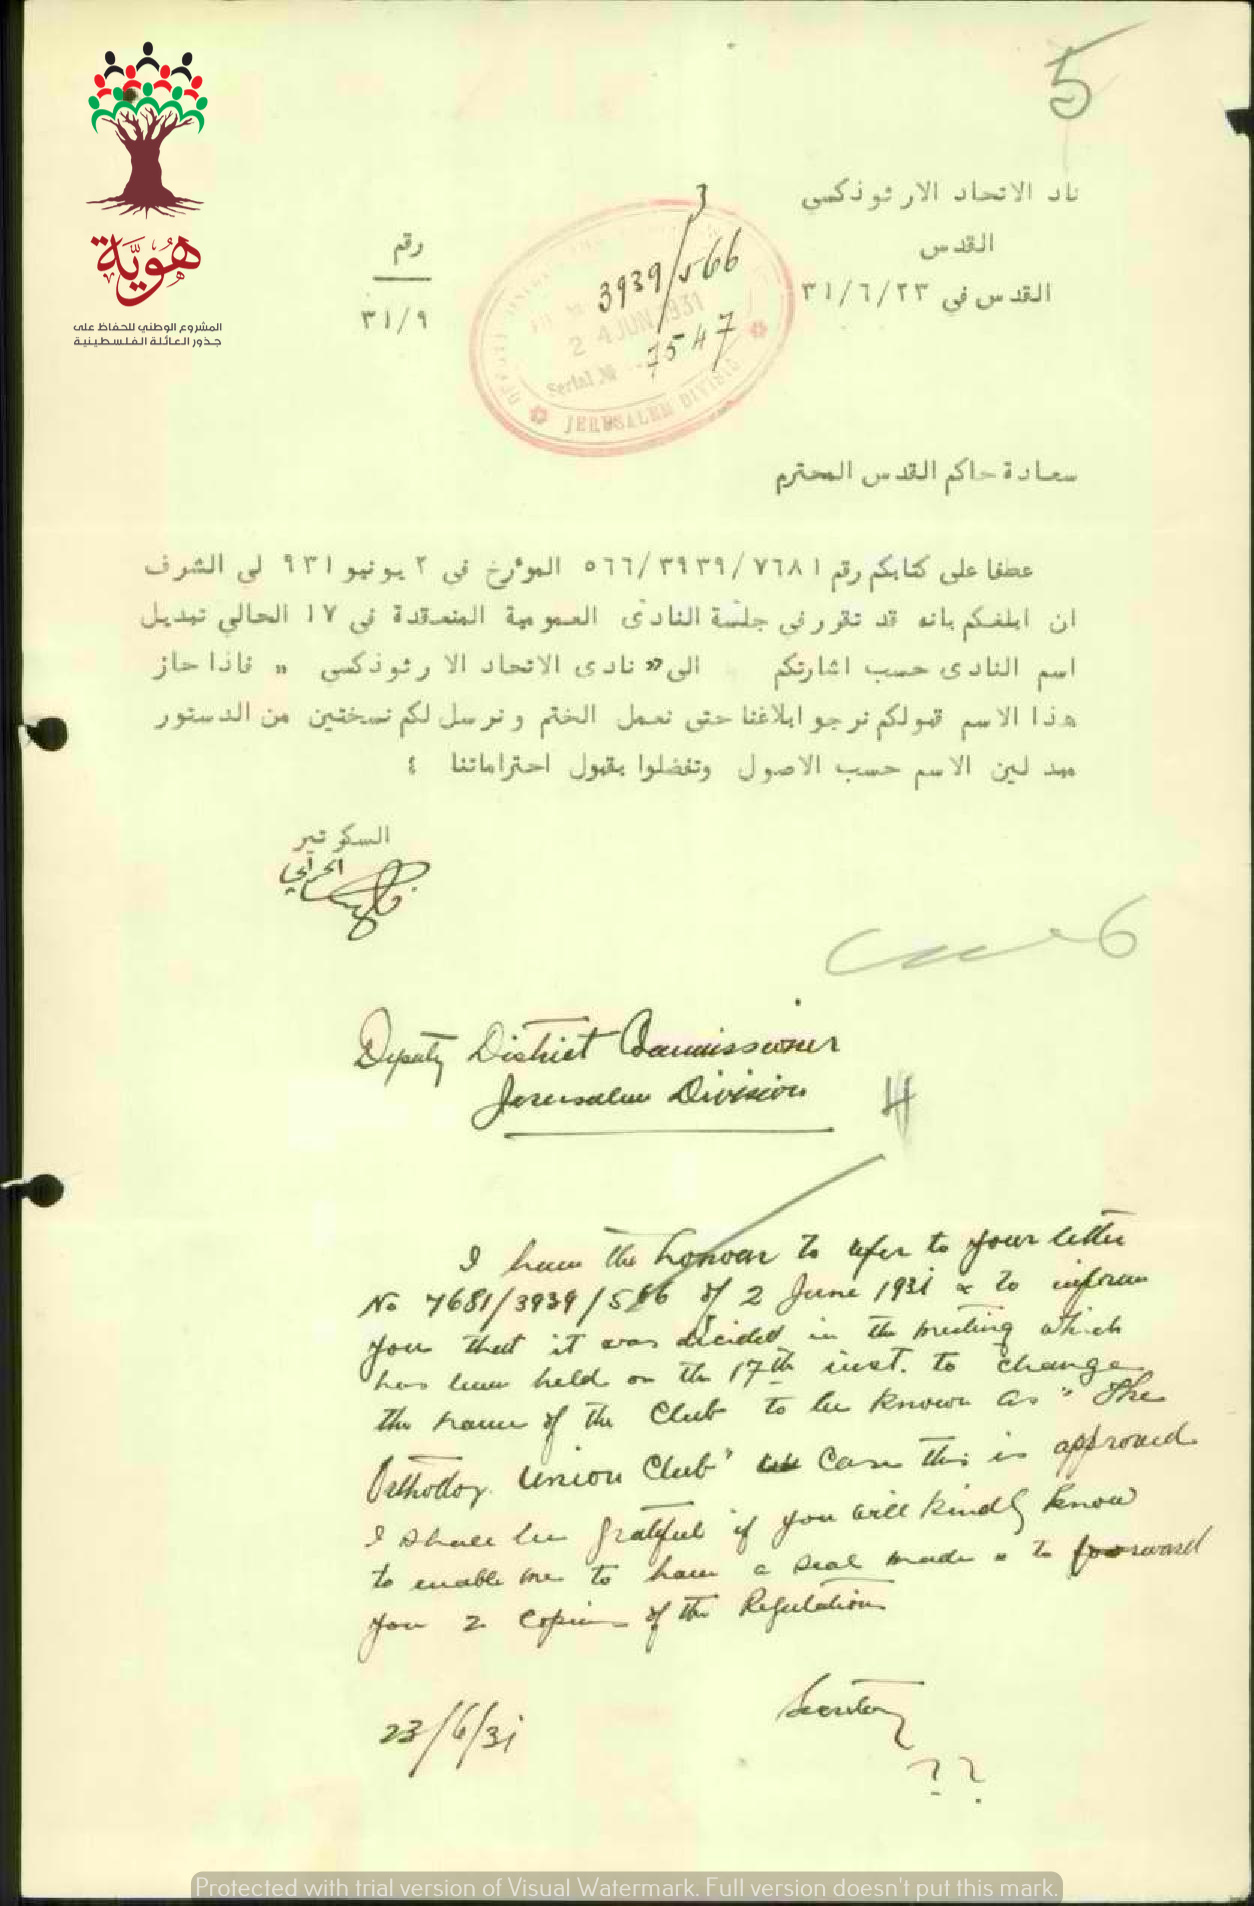 5
ناد الاتحاد الارثوذكسي
القدس
القدس في ٣١/٦/٢٣
رقم
٣١/٩
هويّة
المشروع الوطني للحفاظ على
جذور العائلة الفلسطينية
3939/566
24 JUN 1931
Serial № 7547
JERUSALEM DIVISIO
سعادة حاكم القدس المحترم
عطفا على كتابكم رقم ٥٦٦/٣٩٣٩/٧٦٨١ المؤرخ في ٢ يونيو ٩٣١ لي الشرف
ان ابلغكم بانه قد تقرر في جلسة النادى العمومية المنعقدة في ١٧ الحالي تبديل
اسم النادى حسب اشارتكم الى " نادى الاتحاد الارثوذكسي " فاذا حاز
هذا الاسم قبولكم نرجو ابلاغنا حتى نعمل الختم ونرسل لكم نسختين من الدستور
مبدلين الاسم حسب الاصول وتفضلوا بقبول احتراماتنا ؛
السكرتير
6
Deputy District Commissioner
Jerusalem Division
4
I have the honour to refer to your letter
No 7681/3939/566 of 2 June 1931 & to inform
you that it was decided in the meeting which
has been held on the 17th inst. to change
the name of the Club to be known as " The
Orthodox Union Club" Case this is approved
I shall be grateful if you will kindly know
to enable me to have a seal made & to forward
you 2 copies of the Regulations
Secretary
23/6/31
??
Protected with trial version of Visual Watermark. Full version doesn't put this mark.